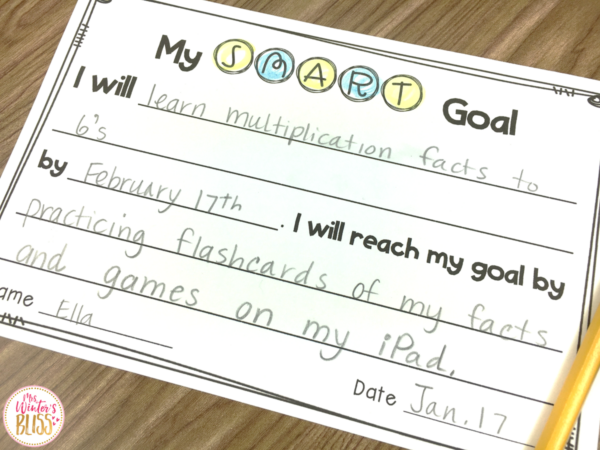 My SMART Goal
I will learn multiplication facts to
6's
by February 17th. I will reach my goal by
practicing flashcards of my facts
and games on my iPad.
ame Ella
Date Jan. 17
Mrs.
Winter's
BLISS